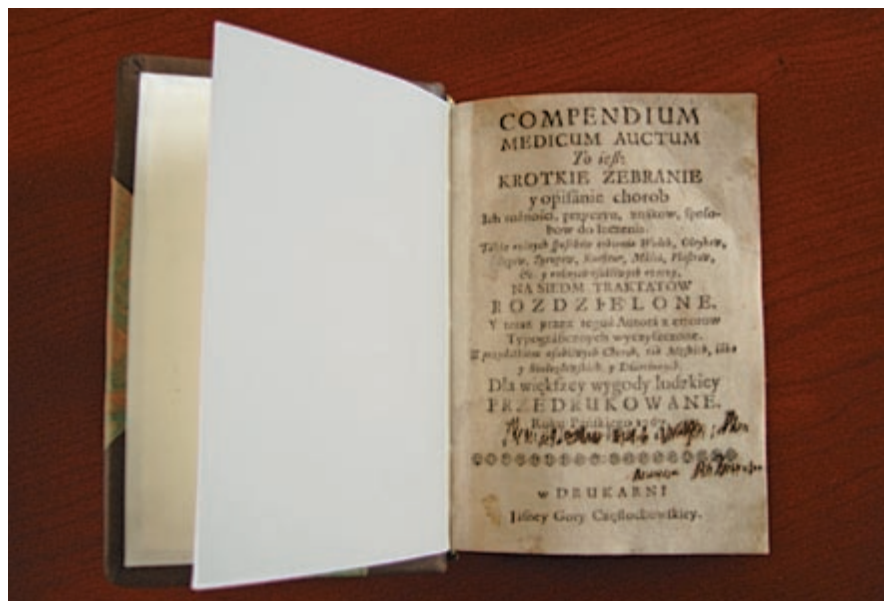 COMPENDIUM
MEDICUM AUCTUM
To ieſt:
KROTKIE ZEBRANIE
y opiſanie chorob
Ich rożności, przyczyn, znakow, ſpoſo-
bow do leczenia.
Także rożnych robienia Wodek, Oleykow,
Syropow, Maśći, Plaſtrow,
&c. y rożnych oſobliwych rzeczy,
NA SIEDM TRAKTATOW
ROZDZIELONE.
Y teraz przez tegoż Autorá z errorow
Typográficznych wyczyſzczone.
Z przydatkiem oſobliwych Chorob, iák Męſkich, iáko
y Białogłowſkich, y Dźiećinnych.
Dla więkſzey wygody ludzkiey
PRZEDRUKOWANE.
Roku Pańſkiego
w DRUKARNI
Jáſney Gory Częſtochowſkiey.